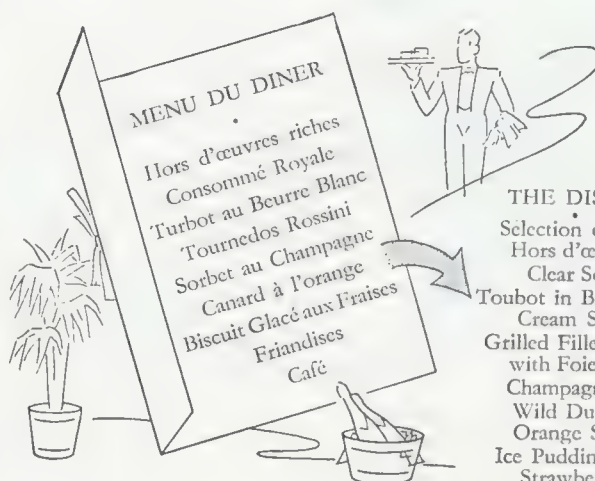 MENU DU DINER
Hors d'œuvres riches
Consommé Royale
Turbot au Beurre Blanc
Tournedos Rossini
Sorbet au Champagne
Canard à l'orange
Biscuit Glacé aux Fraises
Friandises
Café
THE
Selection
Hors
Clear
Toubot in
Cream
Grilled
with
Wild
Orange
Ice